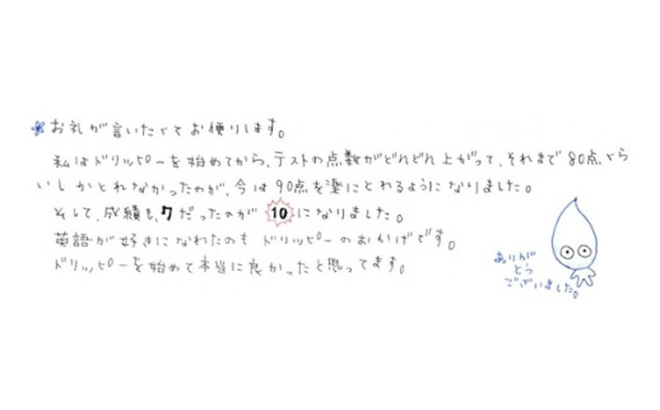 お礼が言いたくてお便りします。
私はドリッピーを始めてから、テストの点数がどんどん上がって、それまで80点くら
いしかとれなかったのが、今は90点を楽にとれるようになりました。
そして、成績も、7だったのが10になりました。
英語が好きになれたのもドリッピーのおかげです。
ドリッピーを始めて本当に良かったと思ってます。
ありが
とう
ございました。